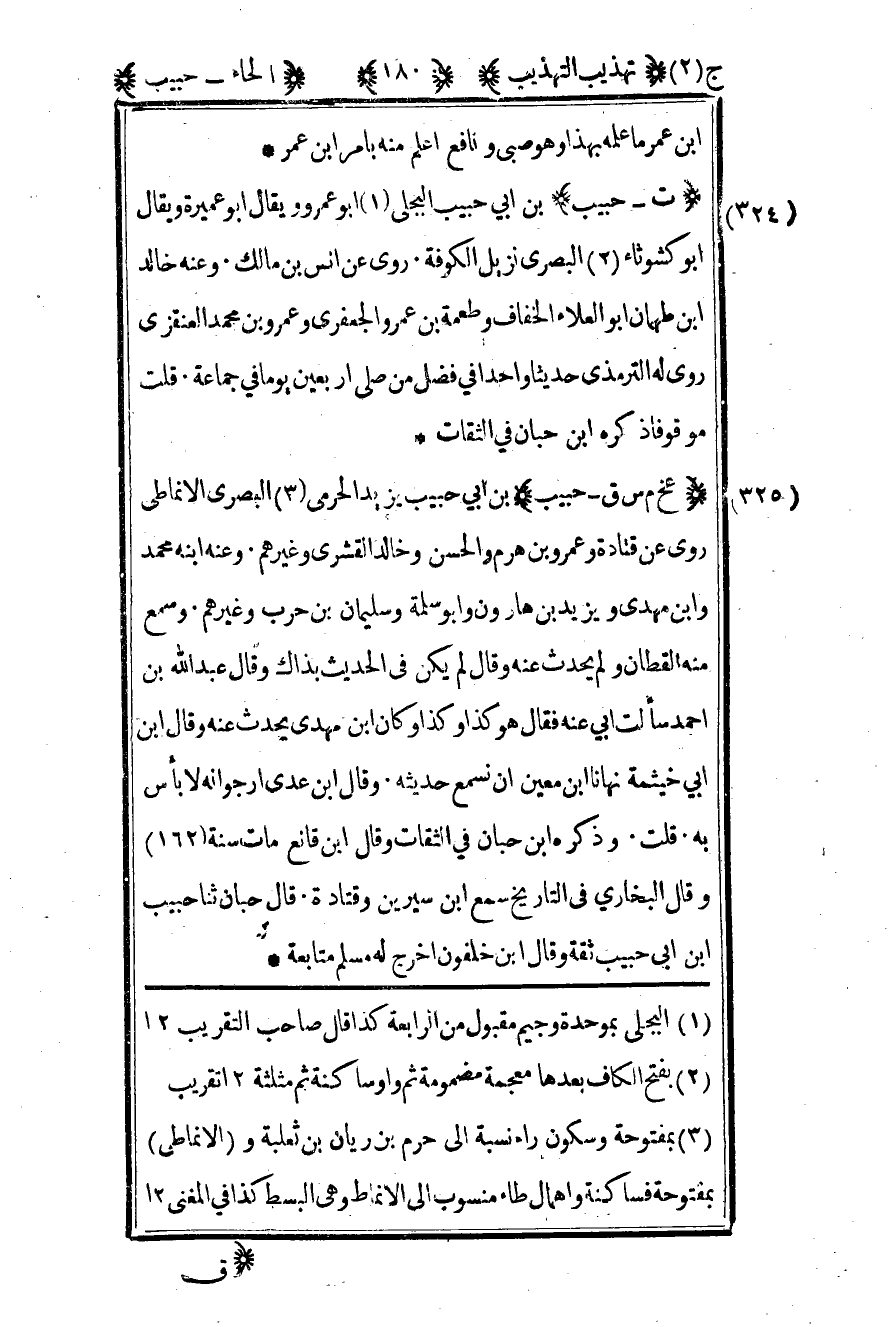 ج (٢) ﴿ تهذيب التهذيب ﴾ ﴿ ١٨٠ ﴾ ﴿ الحاء ـ حبيب ﴾
ابن عمر ما علمه بهذا وهو صبى و نافع اعلم منه بامر ابن عمر *
(٣٢٤) ﴿ ت ـ حبيب ﴾ بن ابي حبيب البجلى (١) ابو عمرو ويقال ابو عميرة ويقال
ابو كشوثاء (٢) البصرى نزيل الكوفة . روى عن انس بن مالك . وعنه خالد
ابن طهمان ابو العلاء الخفاف و طعمة بن عمرو الجعفرى و عمرو بن محمد العنقزى
روى له الترمذى حديثا واحدا في فضل من صلى اربعين يوما في جماعة . قلت
موقوفا ذكره ابن حبان في الثقات *
(٣٢٥) ﴿ عخ م س ق ـ حبيب ﴾ بن ابي حبيب يزيد الحرمى (٣) البصرى الانماطى
روى عن قتادة و عمرو بن هرم والحسن و خالد القشرى وغيرهم . وعنه ابنه محمد
وابن مهدى و يزيد بن هارون وابو سلمة وسليمان بن حرب وغيرهم . وسمع
منه القطان و لم يحدث عنه وقال لم يكن فى الحديث بذاك وقال عبد الله بن
احمد سألت ابي عنه فقال هو كذا و كذا و كان ابن مهدى يحدث عنه وقال ابن
ابي خيثمة نهانا ابن معين ان نسمع حديثه . وقال ابن عدى ارجو انه لا بأس
به . قلت . و ذكره ابن حبان في الثقات وقال ابن قانع مات سنة (١٦٢)
و قال البخاري فى التاريخ سمع ابن سيرين وقتادة . قال حبان ثنا حبيب
ابن ابي حبيب ثقة وقال ابن خلفون اخرج له مسلم متابعة *
(١) البجلى بموحدة وجيم مقبول من الرابعة كذا قال صاحب التقريب ١٢
(٢) بفتح الكاف بعدها معجمة مضمومة ثم واو ساكنة ثم مثلثة ١٢ تقريب
(٣) بمفتوحة وسكون راء نسبة الى حرم بن ريان بن ثعلبة و (الانماطى)
بمفتوحة فساكنة واهمال طاء منسوب الى الانماط وهى البسط كذا في المغنى ١٢
﴿ ق